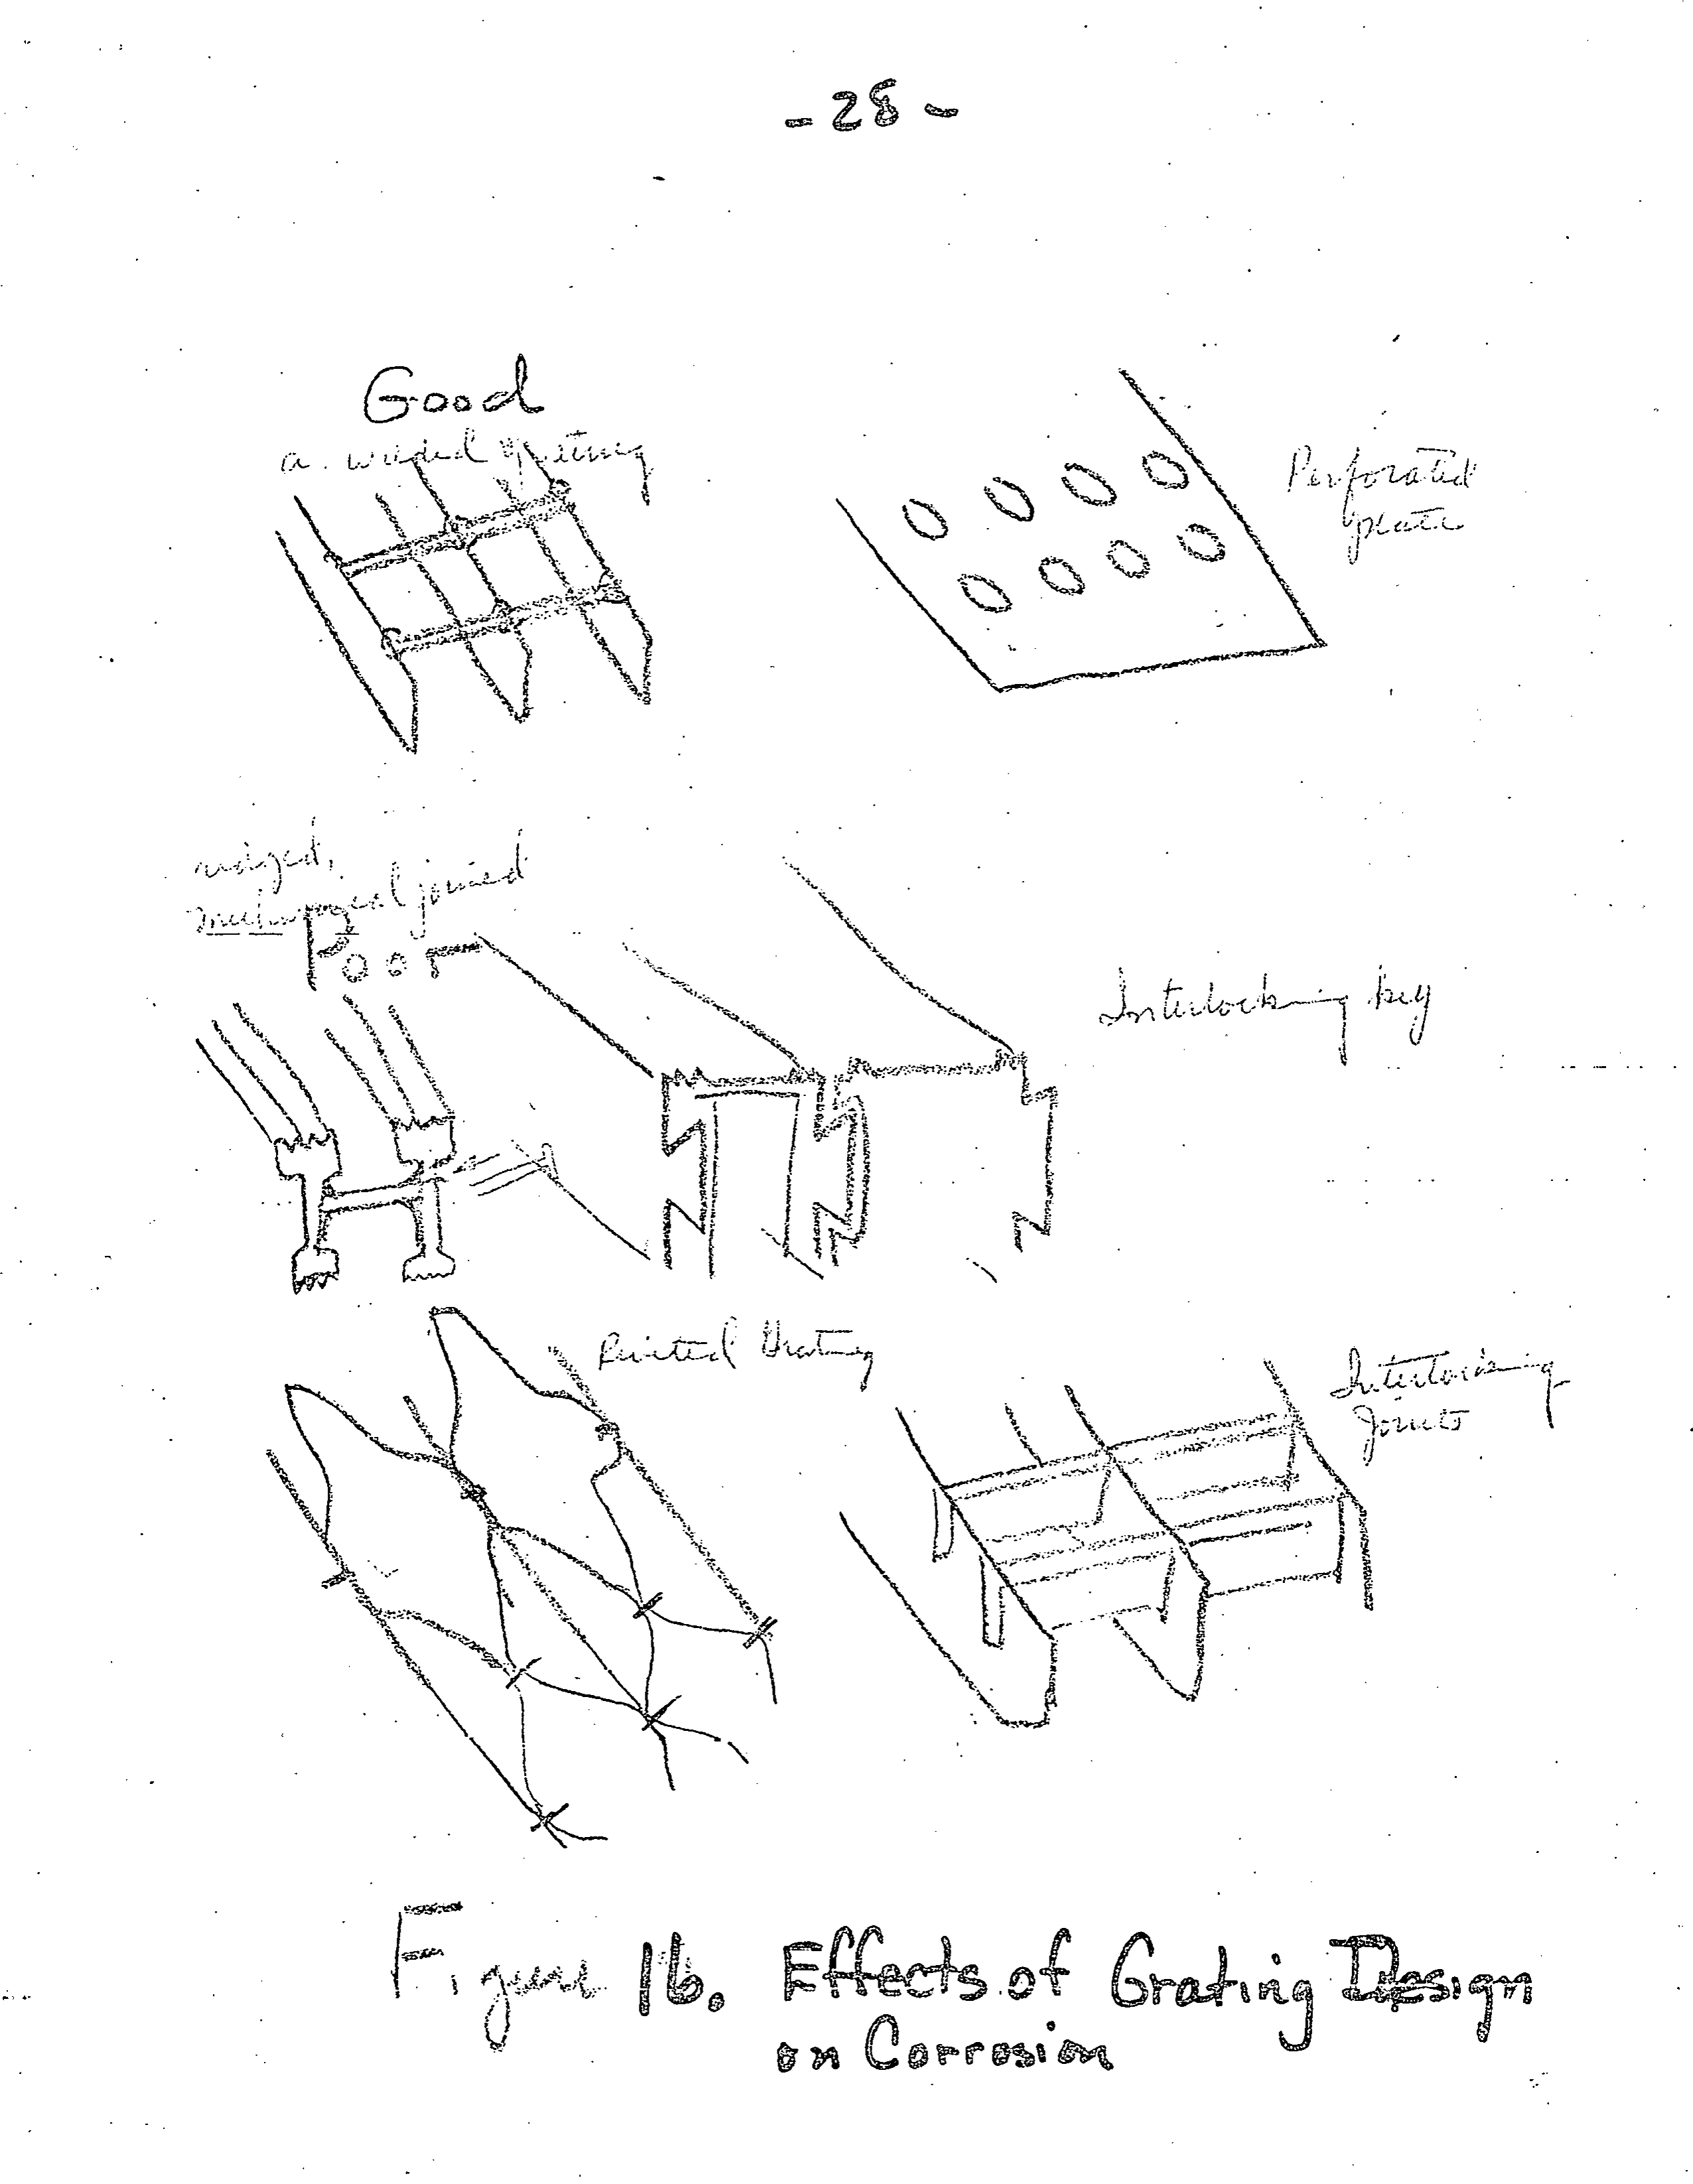 - 28 -
Good
a. welded grating
Perforated
plate
ridged,
mechanical joined
Poor
Interlocking key
Riveted Grating
Interlocking
Joints
Figure 16. Effects of Grating Design
on Corrosion